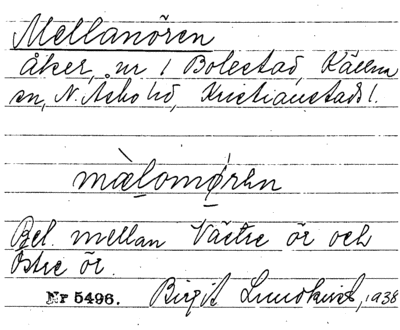 Mellanören
åker, nr 1 Bolestad, Källna
sn, N. Åsbo hd, Kristianstads l.
mæ̀lomǿrhn
Bel. mellan Västre ör och
Östre ör.
Nr 5496. Birgit Lundkvist, 1938